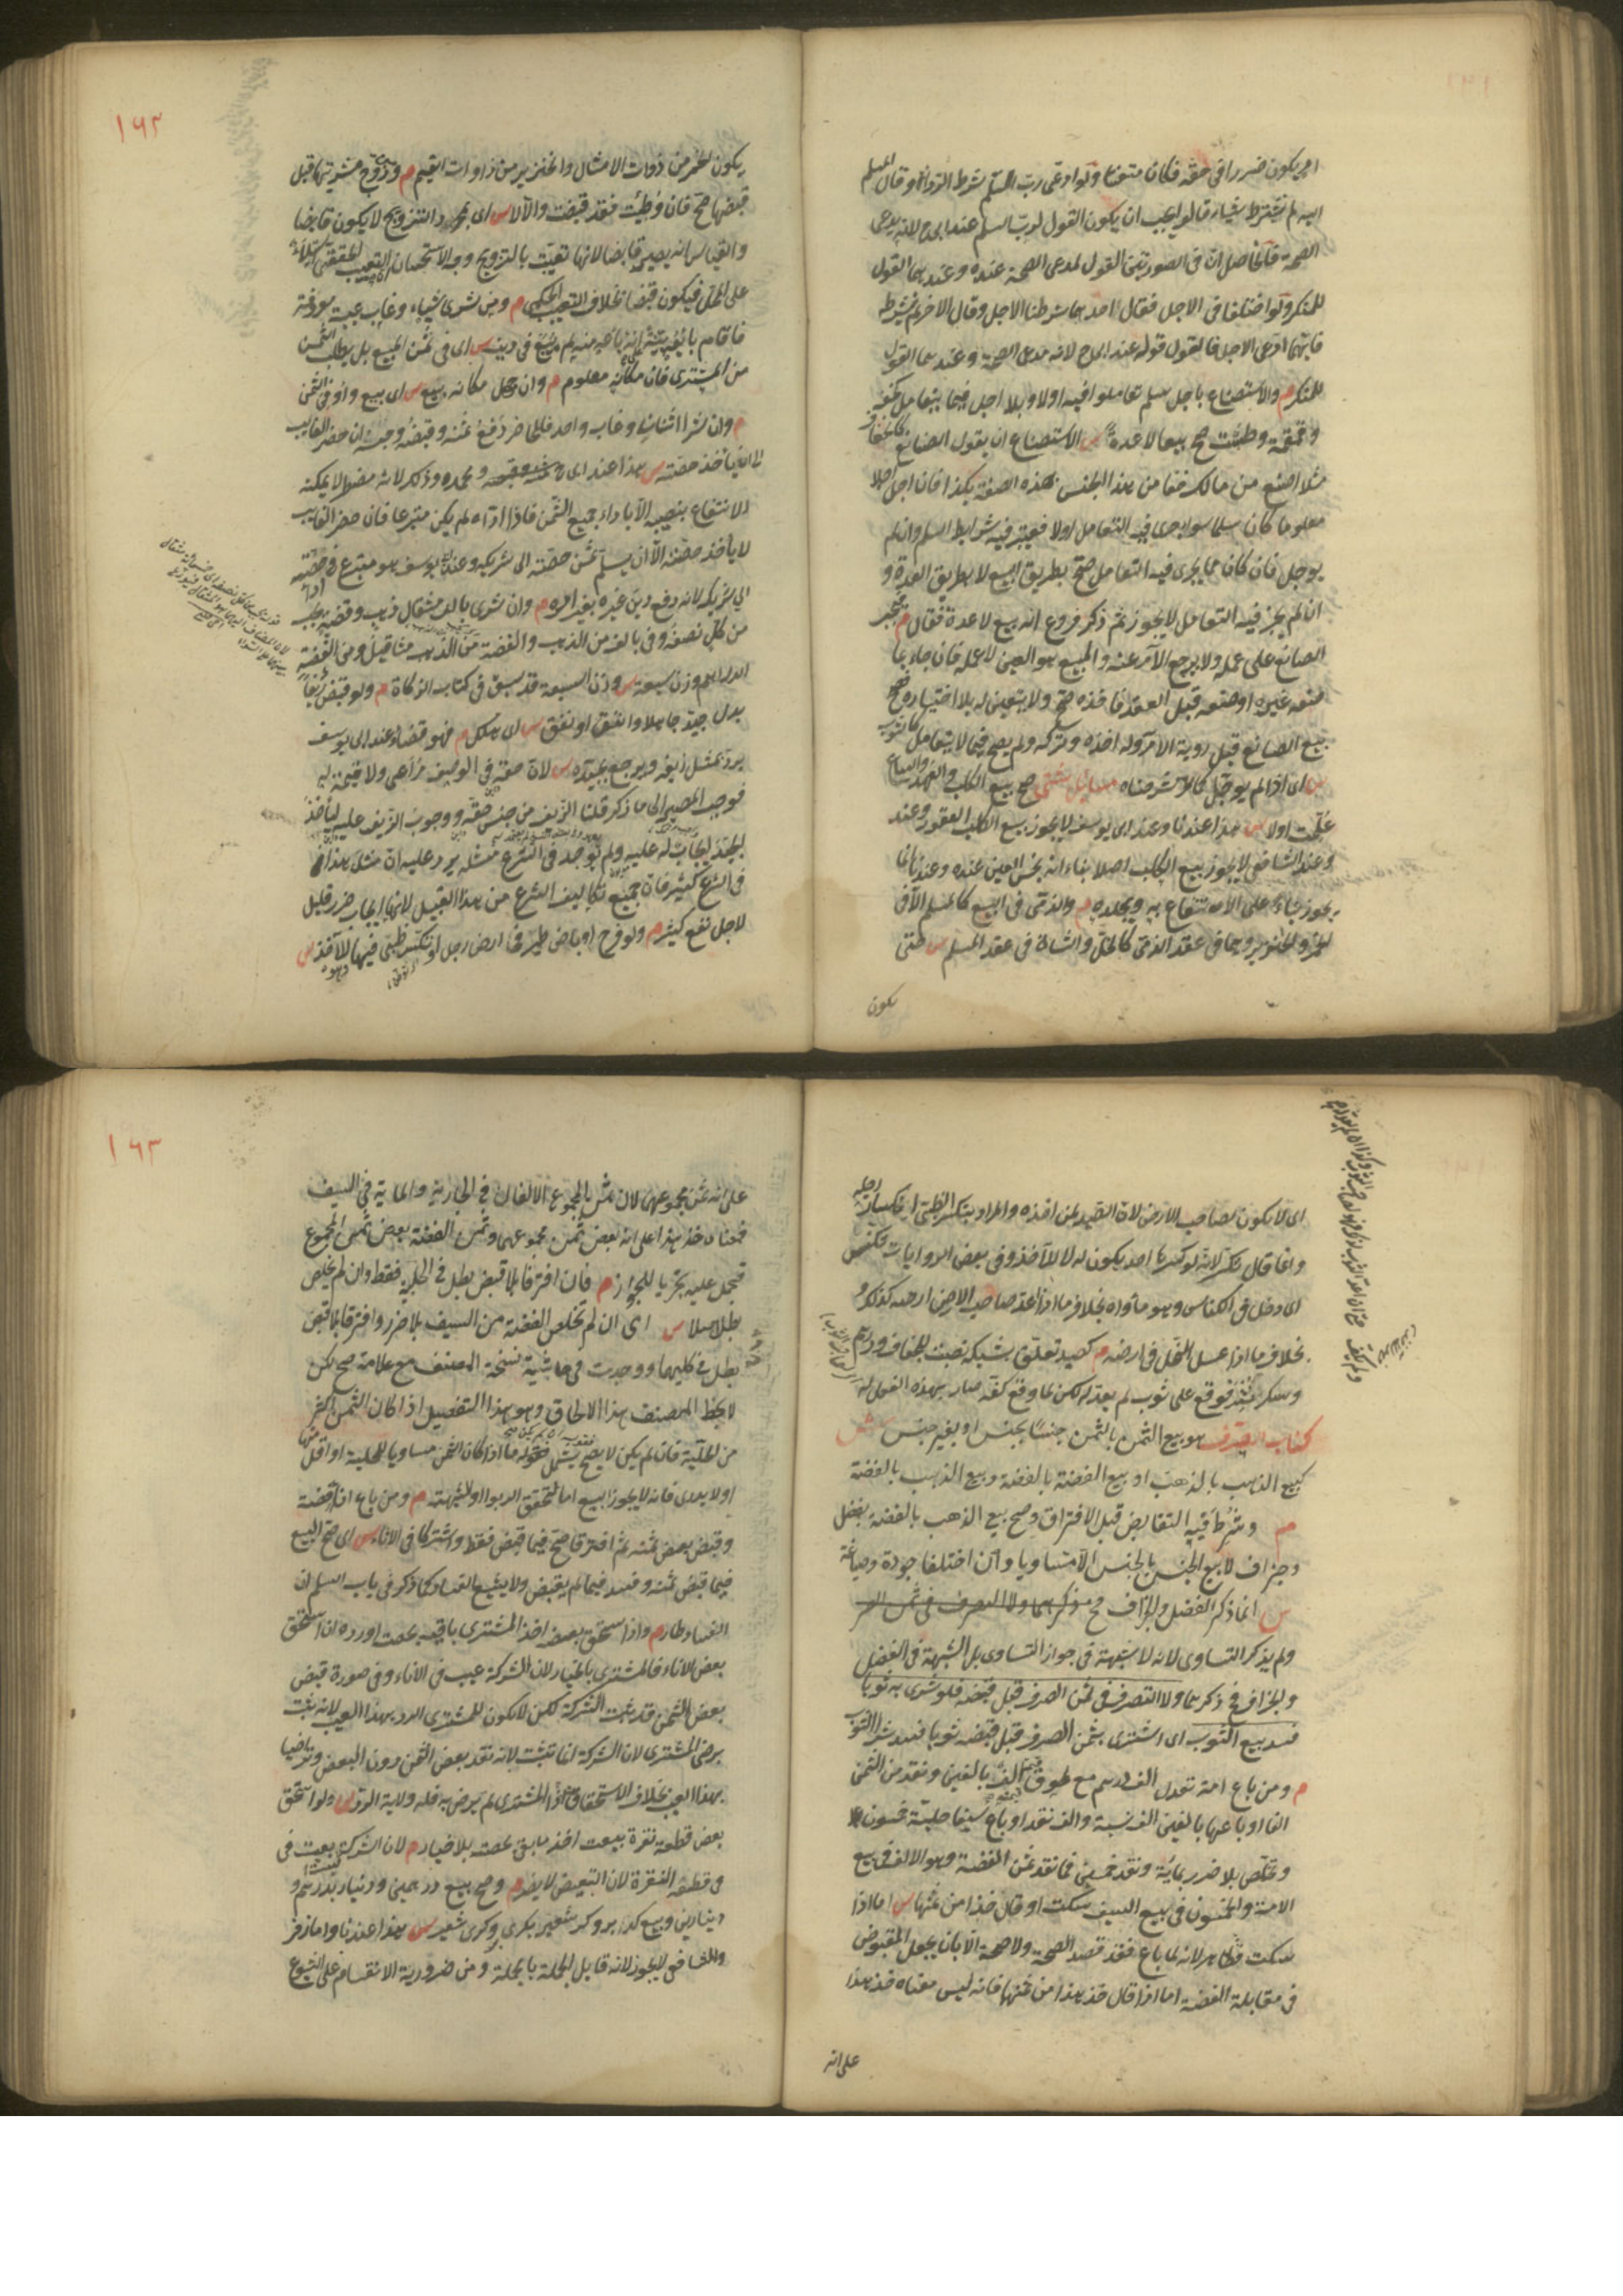 امر يكون ضررا في حقه فكان متعنتا ولو ادعى رب السلم شرط الرداءة وقال المسلم
اليه لم نشترط شيئا فالواجب ان يكون القول لرب السلم عند ابي ح لانه يدعى
الصحة فالحاصل ان في الصورتين القول لمدعى الصحة عنده وعندهما القول
للمنكر ولو اختلفا في الاجل فقال احدهما شرطنا الاجل وقال الاخر لم نشرطه
فايهما ادعى الاجل فالقول قوله عند ابي ح لانه مدعى الصحة وعندهما القول
للمنكر م والاستصناع باجل سلم تعاملوا فيه اولا وبلا اجل فيما يتعامل كخف
وقمقمة وطشت صح بيعا لا عدة س الاستصناع ان يقول للصانع كالخفاف
مثلا اصنع من مالك خفا من هذا الجنس بهذه الصفة بكذا فان اجل اجلا
معلوما كان سلما سواء جرى فيه التعامل اولا فيعتبر فيه شرايط السلم وان لم
يوجل فان كان مما يجرى فيه التعامل صح بطريق البيع لا بطريق العدة و
ان لم يجر فيه التعامل لا يجوز ثم ذكر فروع انه بيع لا عدة فقال م فيجبر
الصانع على عمله ولا يرجع الآمر عنه والمبيع هو العين لا عمله فان جاء بما
صنعه غيره او صنعه قبل العقد فاخذه صح ولا يتعين له بلا اختياره فصح
بيع الصانع قبل روية الآمر وله اخذه وتركه ولم يصح فيما لا يتعامل كالثوب
س اى اذا لم يوجل كالآمر شرحناه مسائل شتى صح بيع الكلب والفهد والسباع
علمت اولا س هذا عندنا وعند ابي يوسف لا يجوز بيع الكلب العقور وعند
وعند الشافعي لا يجوز بيع الكلب اصلا بناء انه نجس العين عنده وعندنا انما
يجوز بناء على الانتفاع به وبجلده م والذمي في البيع كالمسلم الا في
الخمر والخنزير وهما في عقد الذمي كالخل والشاة في عقد المسلم س حتى
يكون
١٦٢
يكون الخمر من ذوات الامثال والخنزير من ذوات القيم م وزوج مشريته قبل
قبضها صح فان وطئت فقد قبضت والا لا س اى بمجرد التزويج لا يكون قابضا
والقياس انه يصير قابضا لانها تعيبت بالتزويج وجه الاستحسان ان التعييب الحقيقي استيلاء
على المحل فيكون قبضا بخلاف التعييب الحكمي م ومن شرى شيئا وغاب غيبة معروفة
فاقام بائعه بينة انه باعه منه لم يبع في دينه س اى في ثمن المبيع بل يطلب الثمن
من المشترى فان مكانه معلوم م وان جهل مكانه بيع س اى بيع واوفى الثمن
م وان شرا اثنان وغاب واحد فللحاضر دفع ثمنه وقبضه وحبسه ان حضر الغايب
الى ان ياخذ حصته س هذا عند ابى حنيفة ومحمد وذلك لانه مضطر لا يمكنه
الانتفاع بنصيبه الا باداء جميع الثمن فاذا اداه لم يكن متبرعا فان حضر الغايب
لا ياخذ حصته الا ان يسلم ثمن حصته الى شريكه وعند ابي يوسف هو متبرع في حصته
الى شريكه لانه دفع دين غيره بغير امره م وان شرى بالف مثقال ذهب وفضة يجب
من كل نصفه وفي بالف من الذهب والفضة من الذهب مثاقيل ومن الفضة
الدراهم وزن سبعة س وزن السبعة قد سبق في كتاب الزكاة م ولو قبض زيفا
بدل جيد جاهلا وانفق او نفق س اى هلك م فهو قضاء عند ابي يوسف
يرد مثل زيفه ويرجع بجيده س لان حقه في الوصف مراعى ولا قيمة له
فوجب المصير الى ما ذكر قلنا الزيف من جنس حقه ووجوب الزيف عليه لياخذ
الجيد ايجاب له عليه ولم يوجد في الشرع مثله يرد عليه ان مثل هذا
في الشرع كثير فان جميع تكاليف الشرع من هذا القبيل لانها ايجاب ضرر قليل
لاجل نفع كثير م ولو فرخ او باض طير في ارض رجل او تكسر ظبي فيها للآخذ س
١٦٣
اى لا يكون لصاحب الارض لان الصيد لمن اخذه والمراد بتكسر الظبي انكسار رجله
وانما قال تكسر لانه لو كسرها احد يكون له لا للآخذ وفي بعض الروايات تكنس
اى دخل في الكناس وهو مأواه بخلاف ما اذا اعد صاحب الارض ارضه كذلك و
بخلاف ما اذا عسل النحل في ارضه م كصيد تعلق بشبكة نصبت للجفاف ودرهم
وسكر نثر فوقع على ثوب لم يعد له لكن لما وقع كفه صار بهذه الفعل له
كتاب الصرف هو بيع الثمن بالثمن جنسا بجنس او بغير جنس ش
كبيع الذهب بالذهب او بيع الفضة بالفضة وبيع الذهب بالفضة
م وشرط فيه التقابض قبل الافتراق وصح بيع الذهب بالفضة بفضل
وجزاف لا بيع الجنس بالجنس الا متساويا وان اختلفا جودة وصياغة
س انما ذكر الفضل والجزاف
ولم يذكر التساوى لانه لا شبهة في جواز التساوى بل الشبهة في الفضل
والجزاف فح ذكرهما ولا التصرف في ثمن الصرف قبل قبضه فلو شرى به ثوبا
فسد بيع الثوب اى اشترى بثمن الصرف قبل قبضه ثوبا فسد شراء الثوب
م ومن باع امة تعدل الف درهم مع طوق الف بالفين ونقد من الثمن
الفا او باعها بالفين الف نسية والف نقد او باع سيفا حليته خمسون
وتخلص بلا ضرر بمائة ونقد خمسين فما نقد ثمن الفضة وهو الالف في بيع
الامة والخمسون في بيع السيف سكت او قال خذا من ثمنها س اما اذا
سكت فظاهر لانه لما باع فقد قصد الصحة ولا صحة الا بان يجعل المقبوض
في مقابلة الفضة اما اذا قال خذ هذا من ثمنها فانه ليس معناه خذ هذا
على انه
على انه ثمن مجموعهما لان ثمن المجموع الالفان في الجارية والماية في السيف
فمعناه خذ هذا على انه بعض ثمن مجموعهما وثمن الفضة بعض ثمن المجموع
فيحمل عليه تحريا للجواز م فان افترقا بلا قبض بطل في الحلية فقط وان لم يخلص
بطل اصلا س اى ان لم تخلص الفضة من السيف بلا ضرر وافترقا بلا قبض
بطل في كليهما ووجدت في حاشية نسخة المصنف مع علامة صح لكن
لا بخط المصنف هذا الالحاق وهو هذا التفصيل اذا كان الثمن اكثر
من الحلية فان لم يكن لا يصح يشمل قوله ما اذا كان الثمن مساويا للحلية او اقل منها
او لا يدرى فانه لا يجوز البيع اما لتحقق الربوا او لشبهته م ومن باع اناء فضة
وقبض بعض ثمنه ثم افترقا صح فيما قبض فقط واشتركا في الاناء س اى صح البيع
فيما قبض ثمنه وفسد فيما لم يقبض ولا يشيع الفساد كما ذكر في باب السلم ان
الفساد طار م واذا استحق بعضه اخذ المشترى باقيه بحصته او رده ان استحق
بعض الاناء فالمشترى بالخيار لان الشركة عيب في الاناء وفي صورة قبض
بعض الثمن قد ثبت الشركة لكن لا يكون للمشترى الرد بهذا العيب لانه ثبت
برضى المشترى لان الشركة انما تثبت لانه نقد بعض الثمن دون البعض وتراضيا
بهذا العيب بخلاف الاستحقاق اذ المشترى لم يرض به فله ولاية الرد س ولو استحق
بعض قطعة نقرة بيعت اخذ ما بقي بحصته بلا خيار م لان الشركة ليست بعيب في
في قطعة النقرة لان التبعيض لا يضر م وصح بيع درهمين ودينار بدرهم و
دينارين وبيع كر بر وكر شعير بكرى بر وكرى شعير س هذا عندنا واما زفر
والشافعي لا يجوز لانه قابل الجملة بالجملة ومن ضرورية الانقسام على الشيوع